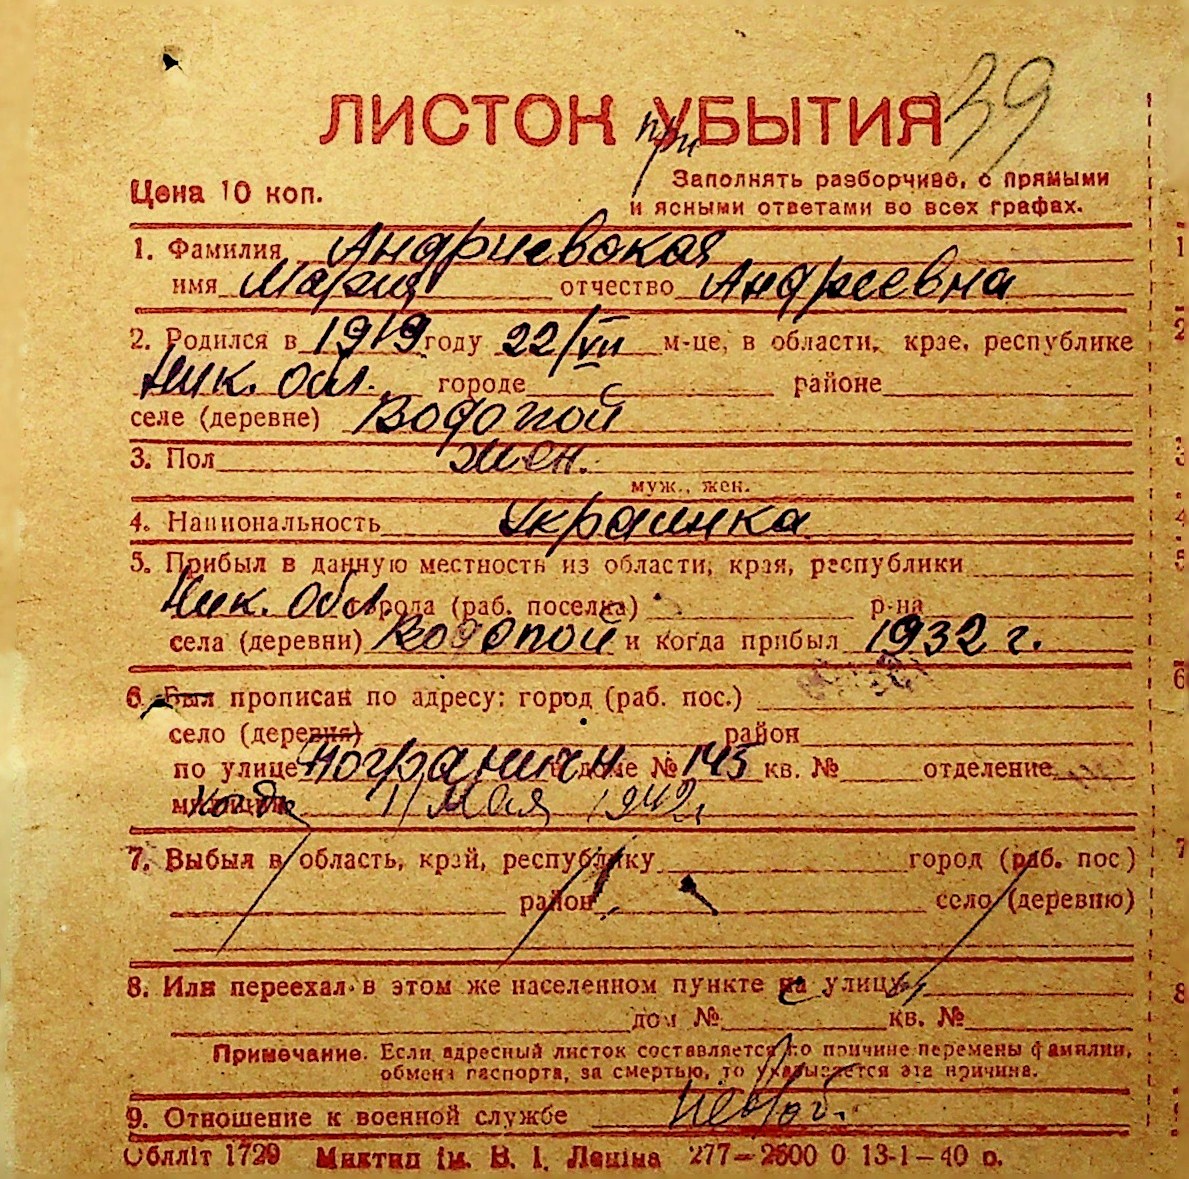 39
ЛИСТОК УБЫТИЯ
при
Цена 10 коп.
Заполнять разборчиво, с прямыми
и ясными ответами во всех графах.
1. Фамилия Андриевская
имя Мария отчество Андреевна
2. Родился в 1919 году 22/VII м-це, в области, крае, республике
Ник. Обл. городе районе
селе (деревне) Водопой
3. Пол жен.
муж., жен.
4. Национальность Украинка
5. Прибыл в данную местность из области, края, республики
Ник. Обл. города (раб. поселка) р-на
села (деревни) Водопой и когда прибыл 1932 г.
6. Был прописан по адресу: город (раб. пос.)
село (деревня) район
по улице Погранични доме № 145 кв. № отделение
милиции Когда 11 Мая 1942 г
7. Выбыл в область, край, республику город (раб. пос)
район село (деревню)
8. Или переехал в этом же населенном пункте с улицы
дом № кв. №
Примечание. Если адресный листок составляется по причине перемены фамилии,
обмена паспорта, за смертью, то указывается эта причина.
9. Отношение к военной службе невоб.
Облліт 1729 Миктип ім. В. І. Леніна 277—2500 0 13-1—40 р.